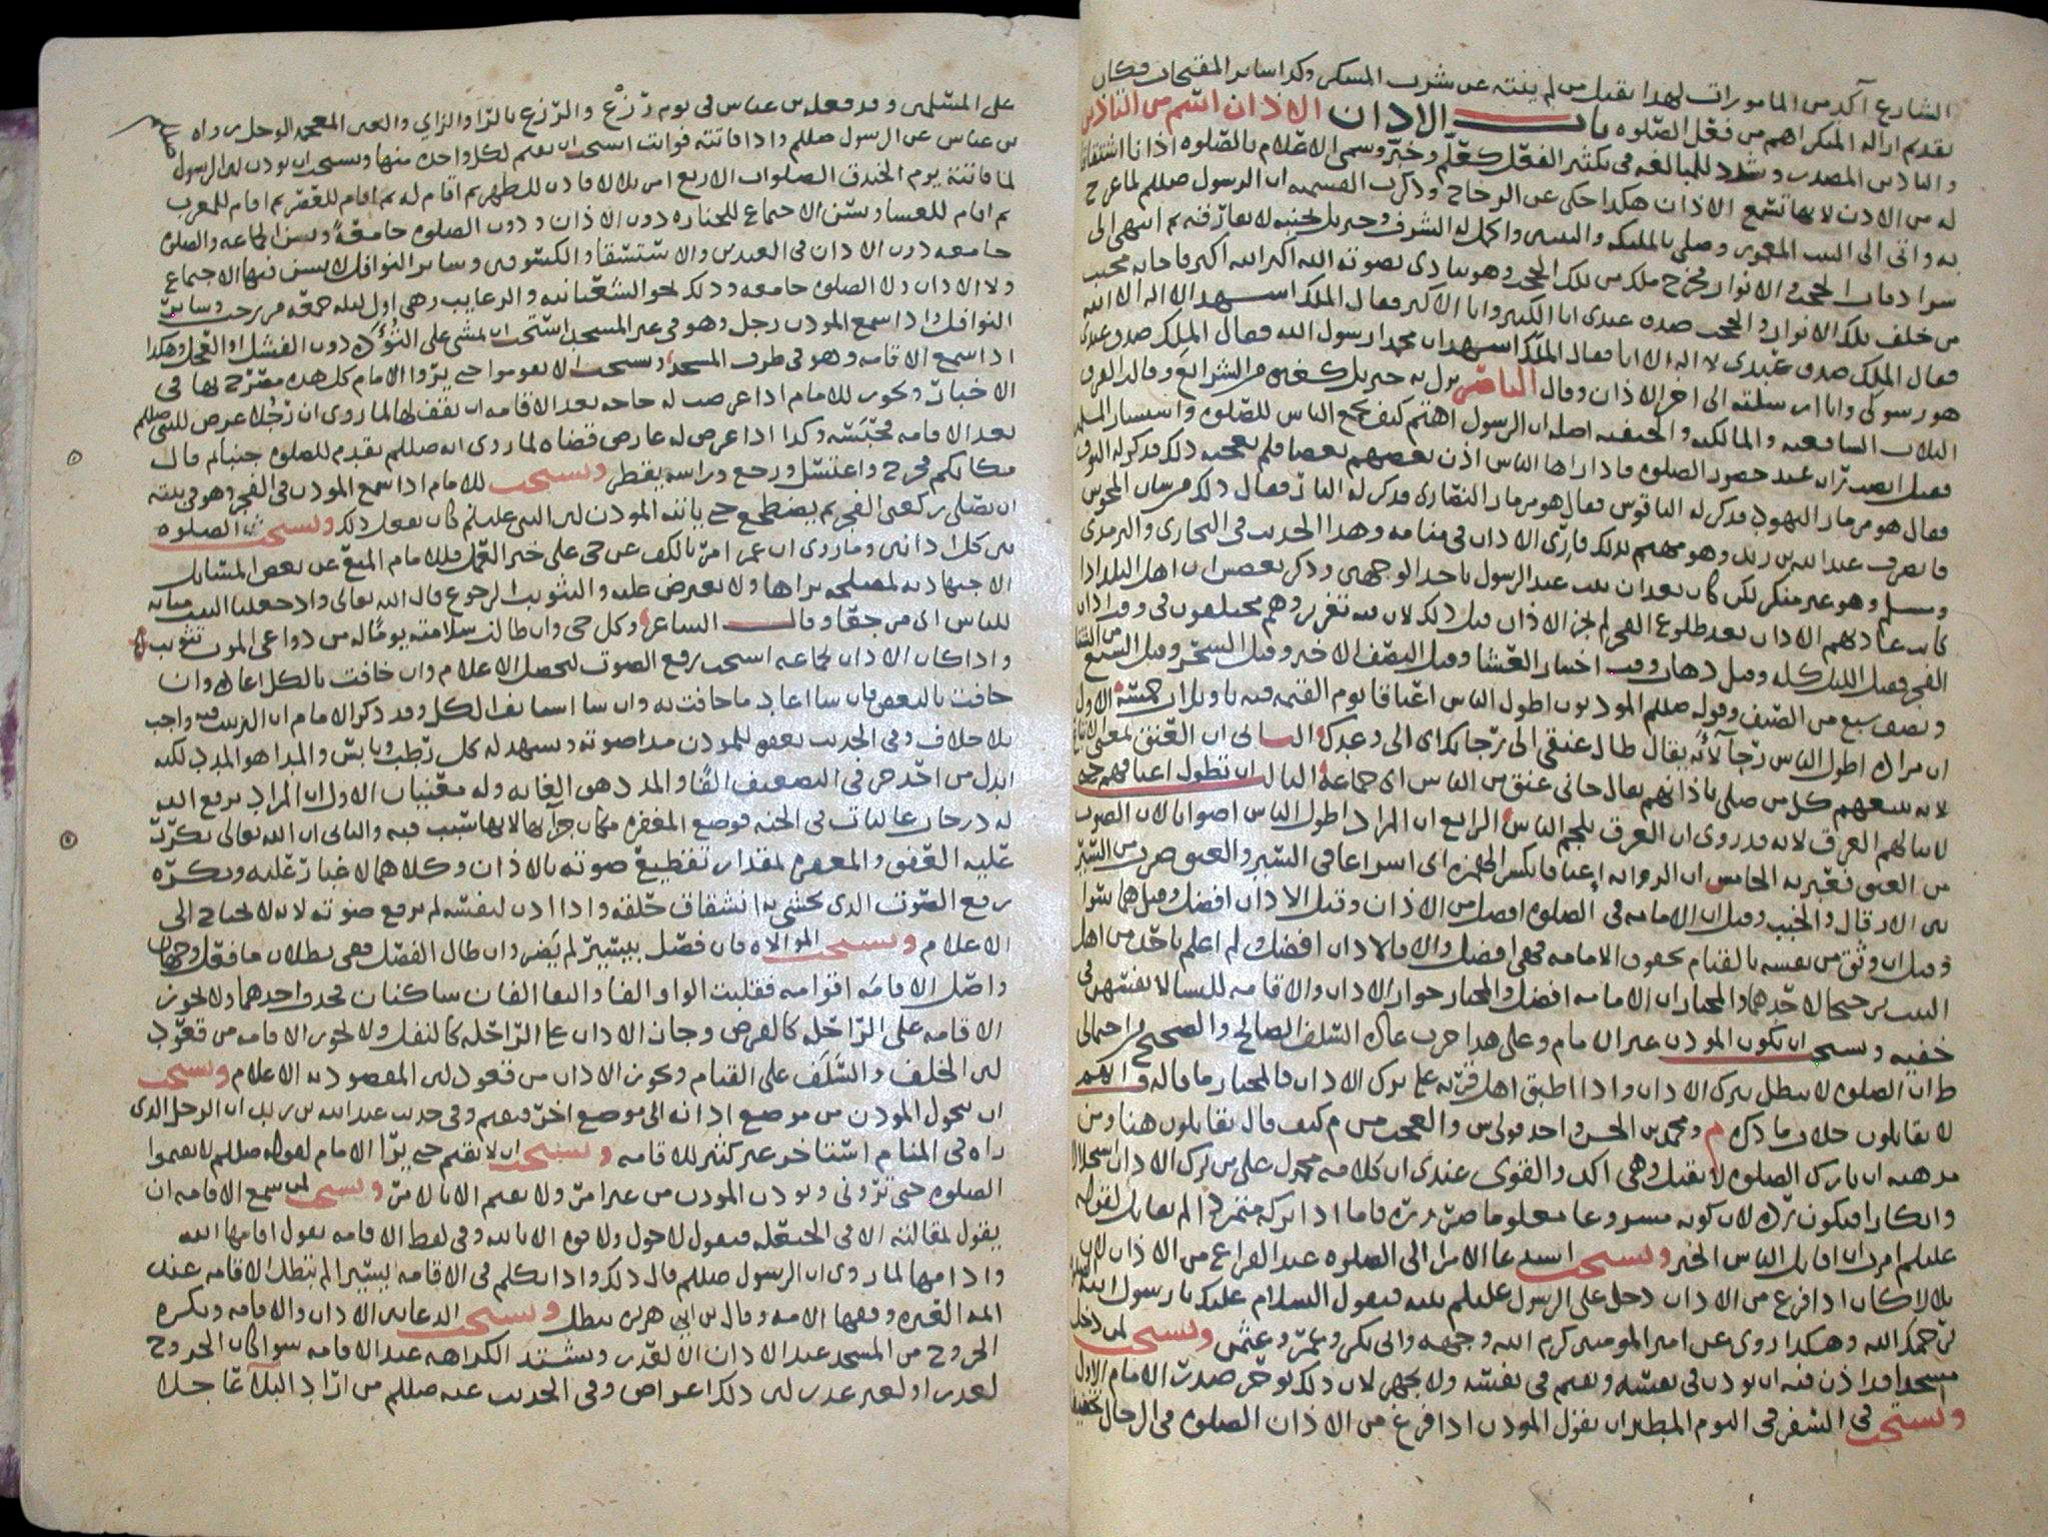 الشارع آكد من المامورات لهذا يقبل من لم ينته عن شرب المسكر وكذا ساير المقبحات فكان
تقديم ازاله المنكر اهم من فعل الصلوه باب الاذان الاذان اسم من التاذين
والتاذين المصدر وشدد للمبالغه في تكثير الفعل كعلّم وخبّر وسمي الاعلام بالصلوه اذانا اشتقاقا
له من الاذن لانها تسمع الاذان هكذا حكى عن الزجاج وذكرت القسميه ان الرسول صللم لما عرج
به واتى الى البيت المعمور وصلى بالمليكه والنبيين واكمل له الشرف وجبريل بجنبه لا يفارقه ثم انتهى الى
الحجب والانوار فخرج ملك من تلك الحجب وهو ينادي بصوته الله اكبر الله اكبر فاجابه مجيب
من خلف تلك الانوار والحجب صدق عبدي انا الكبير وانا الاكبر فقال الملك اشهد ان لا اله الا الله
فقال الملك صدق عبدي لا اله الا انا فقال الملك اشهد ان محمدا رسول الله فقال الملك صدق عبدي
هو رسولي وانا ارسلته الى اخر الاذان وقال الناصر نزل به جبريل كغيره من الشرايع وقالت الفرق
الثلاث الشافعيه والمالكيه والحنفيه اصله ان الرسول اهتم كيف يجمع الناس للصلوه واستشار المسلمين
فقيل انصب رايه عند حضور الصلوه فاذا راها الناس اذن بعضهم بعضا فلم يعجبه ذلك فذكر له البوق
فقال هو مزمار اليهود فذكر له الناقوس فقال هو مزمار النصارى فذكر له النار فقال ذلك من شان المجوس
فانصرف عبدالله بن زيد وهو مهتم بذلك فاري الاذان في منامه وهذا الحديث في البخاري والترمذي
ومسلم وهو غير منكر لكن كان بعد ان ثبت عند الرسول باحد الوجهين وذكر بعضهم ان اهل البلد اذا
كانت عادتهم الاذان بعد طلوع الفجر لم يجز الاذان قبل ذلك لان فيه تغرير وهم مختلفون في وقت اذان
الفجر فقيل الليل كله وقيل ذهاب وقت اختيار العشا وقيل النصف الاخير وقيل السحر وقيل السبع من الشتا
ونصف سبع من الصيف وقوله صللم الموذنون اطول الناس اعناقا يوم القيمه فيه تاويلان خمسه الاول
ان مراده اطول الناس رجآ لانه يقال طال عنقي الى رجايك اي الى وعدك الثاني ان العنق بمعنى الاتباع
لانه يتبعهم كل من صلى باذانهم يقال جاني عنق من الناس اي جماعة الثالث ان تطول اعناقهم حتى
لا ينالهم العرق لانه قد روي ان العرق يلجم الناس الرابع ان المراد اطول الناس اصواتا لان الصوت
من العنق فعبر به الخامس ان الروايه اعناقا بكسر الهمزه اي اسراعا في السير والعنق ضرب من السير
بين الارقال والخبب وقيل ان الامامه في الصلوه افضل من الاذان وقيل الاذان افضل وقيل هما سوا
وقيل ان وثق من نفسه بالقيام بحقوق الامامه فهي افضل والا فالاذان افضل ولم اعلم باحد من اهل
البيت ترجيحا لاحدهما والمختار ان الامامه افضل والمختار جواز الاذان والاقامه للنسا لانفسهن في
خفيه ويستحب ان يكون الموذن غير الامام وعلى هذا جرت عاده السلف الصالح والصحيح من احتمالي
ط ان الصلوه لا تبطل بترك الاذان واذا اطبق اهل قريه على ترك الاذان فالمختار ما قاله م انهم
لا يقاتلون خلاف ما ذكره م ومحمد بن الحسن واحد قولي ش والعجب من م كيف قال يقاتلون هنا ومن
مذهبه ان تارك الصلوه لا يقتل وهي اكد والقوي عندي ان كلامه محمول على من ترك الاذان استحلالا
وانكارا فيكون رده لان كونه مشروعا معلوما ضروره فاما اذا تركه متمردا لم يقاتل لقوله
عليلم امرت ان اقاتل الناس الخبر ويستحب استدعا الامرا الى الصلوه عند الفراغ من الاذان لان
بلالا كان اذا فرغ من الاذان دخل على الرسول عليلم بيته فيقول السلام عليك يا رسول الله الصلوه
يرحمك الله وهكذا روي عن امير المومنين كرم الله وجهه وابي بكر وعمر وعثمن ويستحب لمن دخل
مسجدا قد اذن فيه ان يوذن في نفسه ويقيم في نفسه ولا يجهر لان ذلك يوغر صدر الامام الاول
ويستحب في السفر في اليوم المطير ان يقول الموذن اذا فرغ من الاذان الصلوه في الرحال تخفيفا
على المسلمين وقد فعله بن عباس في يوم رزغ والرزغ بالرا والزاي والغين المعجمه الوحل رواه
بن عباس عن الرسول صللم واذا فاتته فوايت استحب ان يقيم لكل واحده منها ويستحب ان يوذن لان الرسول
لما فاتته يوم الخندق الصلوات الاربع امر بلالا فاذن للظهر ثم اقام له ثم اقام للعصر ثم اقام للمغرب
ثم اقام للعشا ويسن الاجتماع للجنازه دون الاذان ودون الصلوه جامعةً ويسن الجماعه والصلوه
جامعه دون الاذان في العيدين والاستسقا والكسوفين وساير النوافل لا يسن فيها الاجتماع
ولا الاذان ولا الصلوه جامعه وذلك نحو الشعبانيه والرغايب وهي اول ليله جمعه من رجب وساير
النوافل واذا سمع الموذن رجل وهو في غير المسجد استحب ان يمشي على التُؤَده دون الفشل او العجل وهكذا
اذا سمع الاقامه وهو في طرف المسجد ويستحب الا يقوموا حتى يروا الامام كل هذه مصرح بها في
الاخبار ويجوز للامام اذا عرضت له حاجه بعد الاقامه ان يقف لها لما روي ان رجُلا عرض للنبي صللم
بعد الاقامه فحبسه وكذا اذا عرض له عارض قضاه لما روي انه صللم تقدم للصلوه جنبا ثم قال
مكانكم فخرج واغتسل ورجع وراسه يقطر ويستحب للامام اذا سمع الموذن في الفجر وهو في بيته
ان يصلي ركعتي الفجر ثم يضطجع حتى ياتيه الموذن لان النبي عليلم كان يفعل ذلك ويستحب الصلوه
بين كل اذانين وما روي ان عمر امر بالكف عن حي على خير العمل فللامام المنع عن بعض المسايل
الاجتهاديه لمصلحه يراها ولا يعترض عليه والتثويب الرجوع قال الله تعالى واذ جعلنا البيت مثابه
للناس اي مرجعا وقال الشاعر وكل حي وان طالت سلامته يومًا له من دواعي الموت تثويب
واذا كان الاذان لجماعه استحب رفع الصوت ليحصل الاعلام وان خافت بالكل اعاد وان
خافت بالبعض فان شا اعاد ما خافت به وان شا استانف الكل وقد ذكر الامام ان الترتيب فيه واجب
بلا خلاف وفي الحديث يغفر للموذن مدا صوته ويشهد له كل رطب ويابس والمدا هو المدد لكنه
ابدل من احد حرفي التضعيف الفًا والمدد هي الغايه وله معنيان الاول ان المراد يرفع الله
له درجات عاليات في الجنه فوضع المغفره مكان جزآيها لانها سبب فيه والثاني ان الله تعالى يكرر
عليه العفو والمغفره لمقدار تقطيع صوته بالاذان وكلاهما لا غبار عليه ويكره
رفع الصوت الذي يخشى به انشقاق حلقه واذا اذن لنفسه لم يرفع صوته لانه لا يحتاج الى
الاعلام ويستحب الموالاه فان فصل بيسير لم يضر وان طال الفصل فهي بطلان ما فعل وجهان
واصل الاقامه اقوامه فقلبت الواو الفا والتقا الفان ساكنان فحذف احدهما ولا يجوز
الاقامه على الراحله كالفرض وجاز الاذان على الراحله كالنفل ولا يجوز الاقامه من قعود
لان الخلف والسلف على القيام ويجوز الاذان من قعود لان المقصود به الاعلام ويستحب
ان يتحول الموذن من موضع اذانه الى موضع اخر فيقيم وفي حديث عبدالله بن زيد ان الرجل الذي
راه في المنام استاخر غير كثير للاقامه ويستحب ان لا يقيم حتى يرا الامام لقوله صللم لا تقيموا
الصلوه حتى تروني ويوذن الموذن من غير امر ولا يقيم الا بالامر ويستحب لمن سمع الاقامه ان
يقول لمقالته الا في الحيعله فيقول لا حول ولا قوه الا بالله وفي لفظ الاقامه يقول اقامها الله
وادامها لما روي ان الرسول صللم قال ذلك واذا تكلم في الاقامه يسيرا لم تبطل الاقامه عند
ايمه العتره وفقها الامه وقال بن ابي هريره تبطل ويستحب الدعا بين الاذان والاقامه ويكره
الخروج من المسجد عند الاذان الا لعذر ويشتد الكراهه عند الاقامه سوا كان الخروج
لعذر او لغير عذر لان ذلك اعراض وفي الحديث عنه صللم من اراد البلآ عاجلا